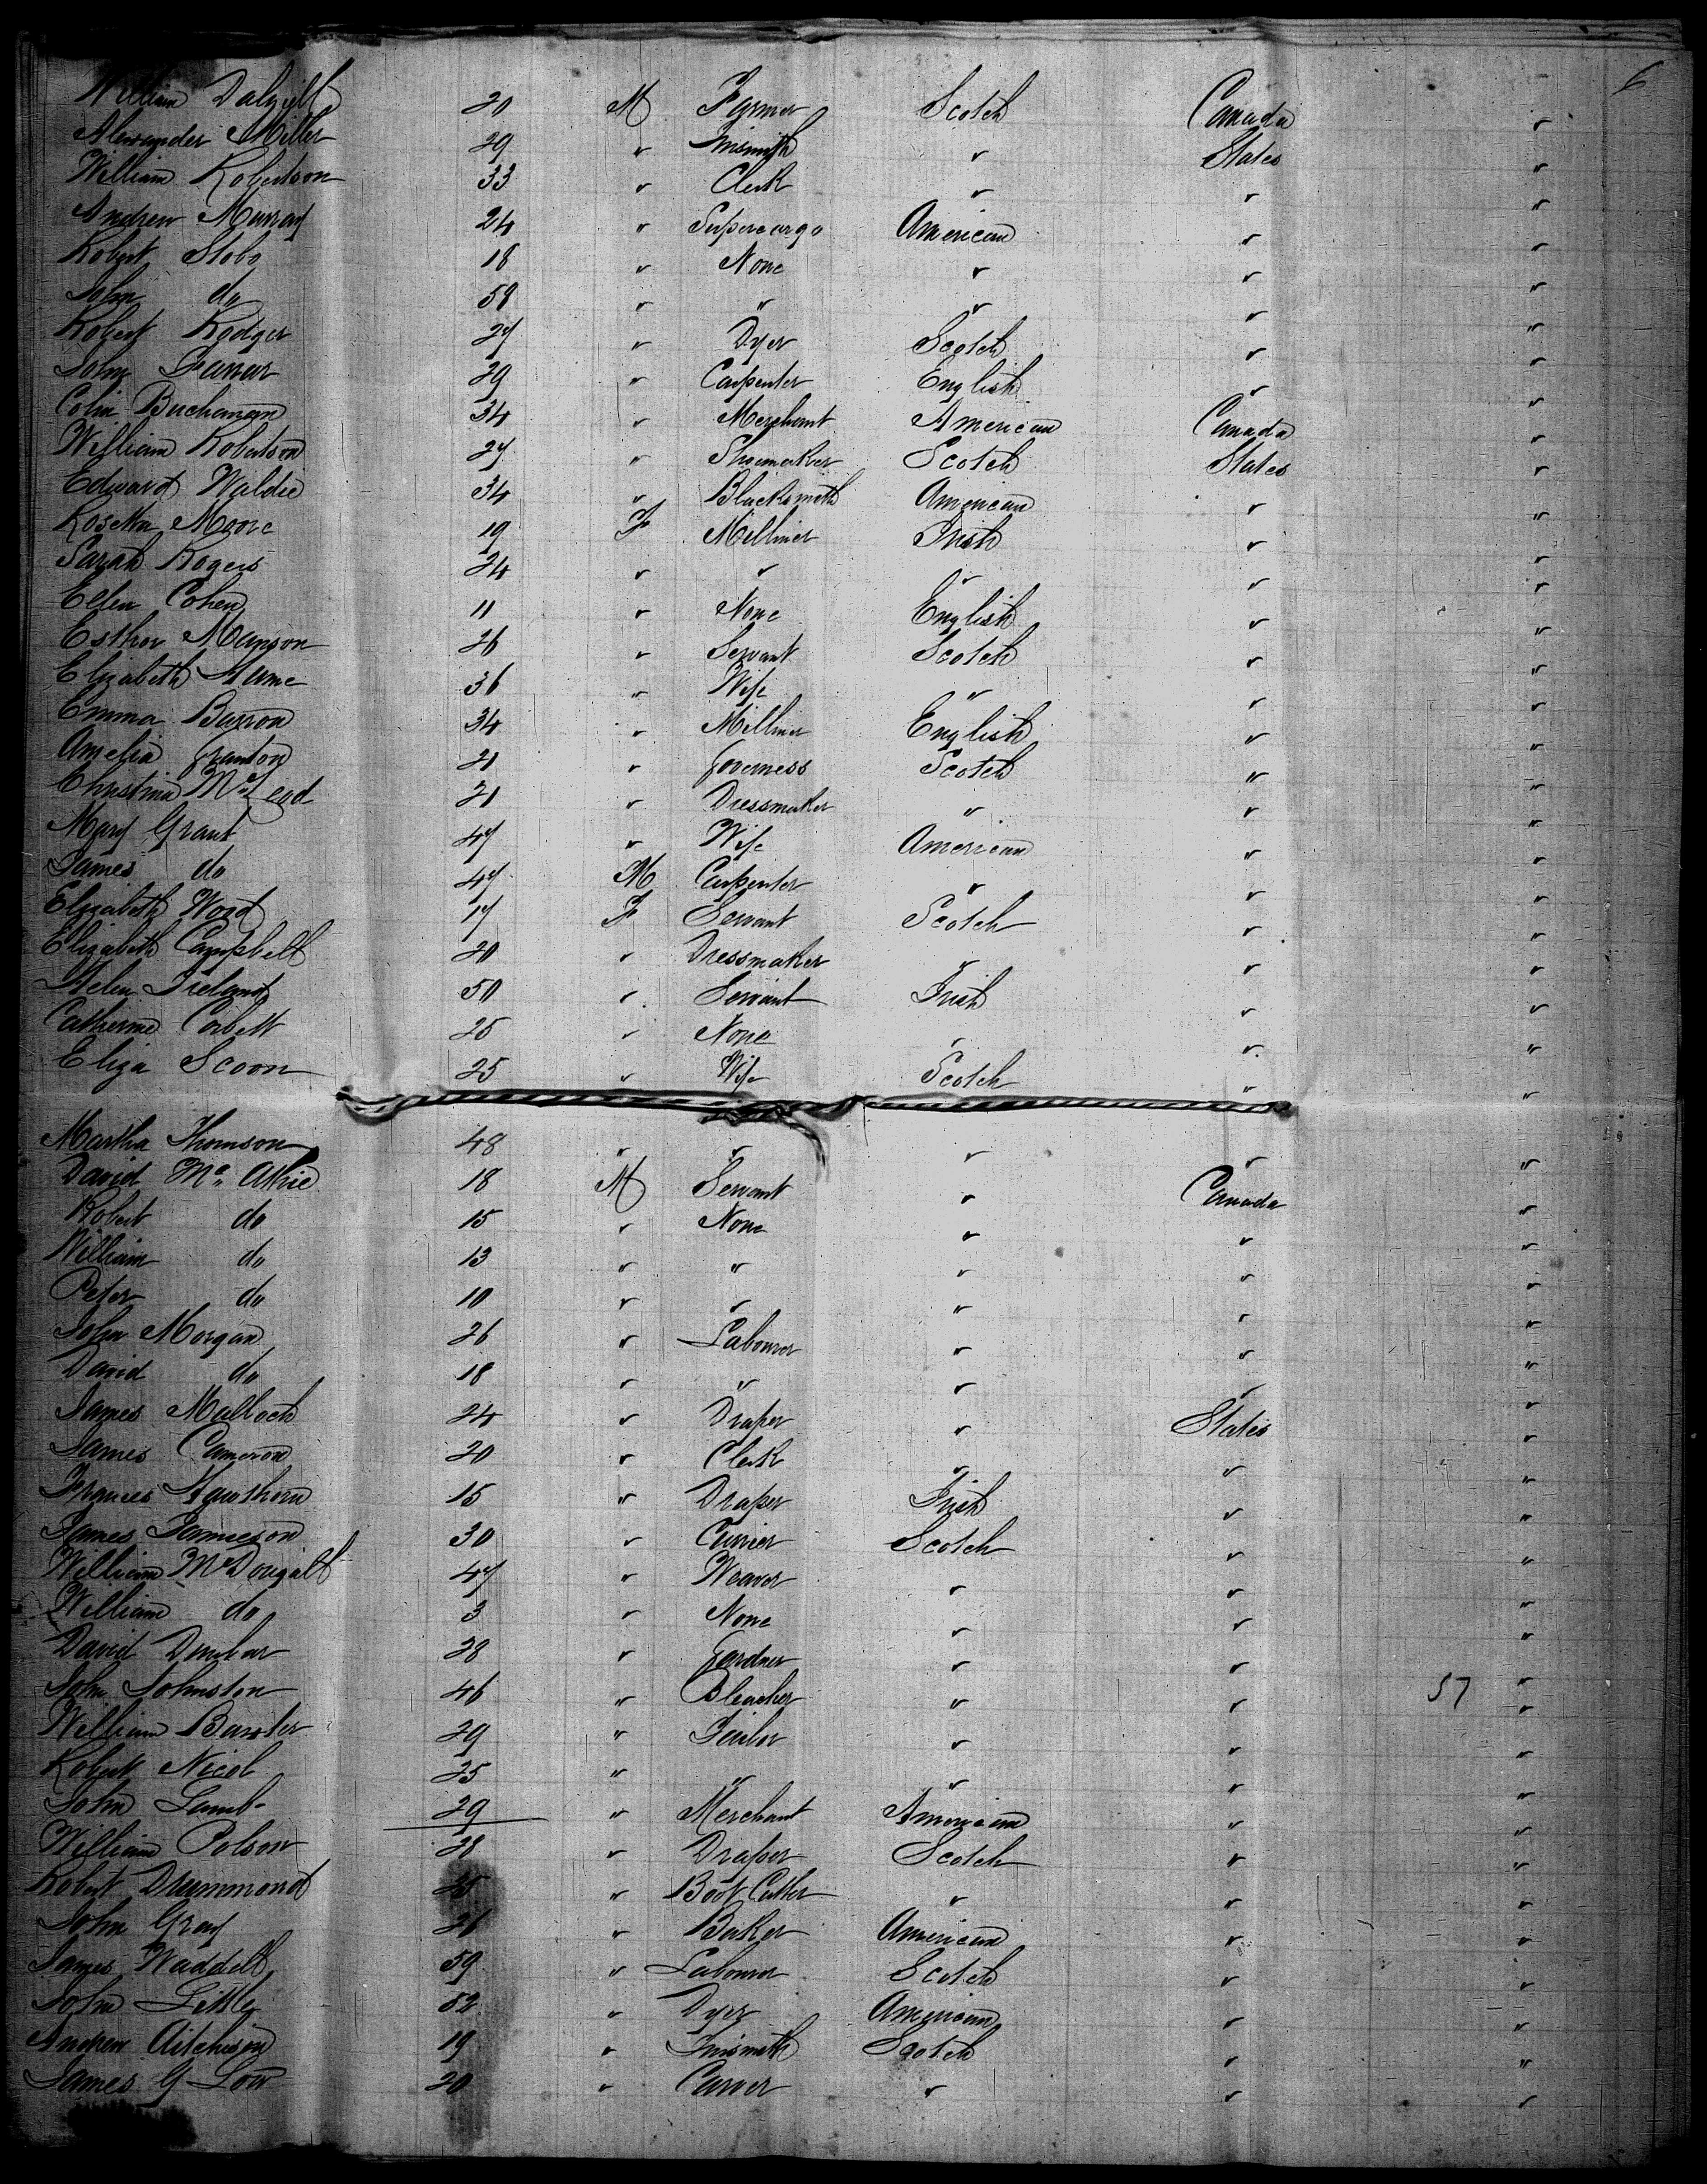 6
William Dalziell 20 M Farmer Scotch Canada "
Alexander Miller 29 " Tinsmith " States "
William Robertson 33 " Clerk " " "
Andrew Murray 24 " Supercargo American " "
Robert Stobo 18 " None " " "
John do 58 " " " " "
Robert Rodger 27 " Dyer Scotch " "
John Farrar 29 " Carpenter English " "
Colin Buchanan 34 " Merchant American Canada "
William Robertson 27 " Shoemaker Scotch States "
Edward Waldie 34 " Blacksmith American " "
Rosetta Moore 19 F Milliner Irish " "
Sarah Rogers 24 " " " " "
Ellen Cohen 11 " None English " "
Esther Manson 26 " Servant Scotch " "
Elizabeth Hume 36 " Wife " " "
Emma Barron 34 " Milliner English " "
Amelia Granton 21 " Governess Scotch " "
Christina McLeod 21 " Dressmaker " " "
Mary Grant 47 " Wife American " "
James do 47 M Carpenter " " "
Elizabeth Wood 17 F Servant Scotch " "
Elizabeth Campbell 20 " Dressmaker " " "
Helen Ireland 50 " Servant Irish " "
Catherine Corbett 25 " None " " "
Eliza Scoon 25 " Wife Scotch " "
Martha Thomson 48 " " " " "
David Mc Athie 18 M Servant " Canada "
Robert do 15 " None " " "
William do 13 " " " " "
Peter do 10 " " " " "
John Morgan 26 " Labourer " " "
David do 18 " " " " "
James Malloch 24 " Draper " States "
James Cameron 20 " Clerk " " "
Frances Hawthorn 15 " Draper Irish " "
James Jamieson 30 " Currier Scotch " "
William McDougall 47 " Weaver " " "
William do 3 " None " " "
David Dunbar 28 " Gardner " " "
John Johnston 46 " Bleacher " " 57 "
William Baxter 29 " Tailor " " "
Robert Nicol 25 " " " " "
John Lamb 29 " Merchant American " "
William Polson 28 " Draper Scotch " "
Robert Drummond 25 " Boot Cutter " " "
John Gray 26 " Baker American " "
James Waddell 59 " Labourer Scotch " "
John Little 52 " Dyer American " "
Andrew Aitchison 19 " Tinsmith Scotch " "
James G Low 20 " Carver " " "